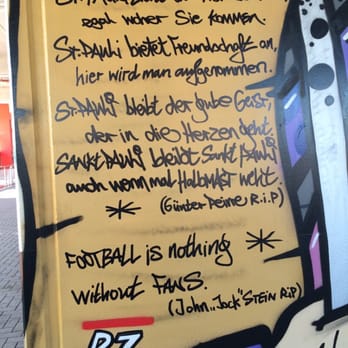 egal woher Sie kommen.
St. Pauli bietet Freundschaft an,
hier wird man aufgenommen.
St. Pauli bleibt der gute Geist,
der in die Herzen geht.
SANKT PAULI bleibt Sankt Pauli
auch wenn mal HALBMAST weht.
(Günter Peine R.i.P)
FOOTBALL is nothing
without FANS.
(John „Jock" STEIN RiP)